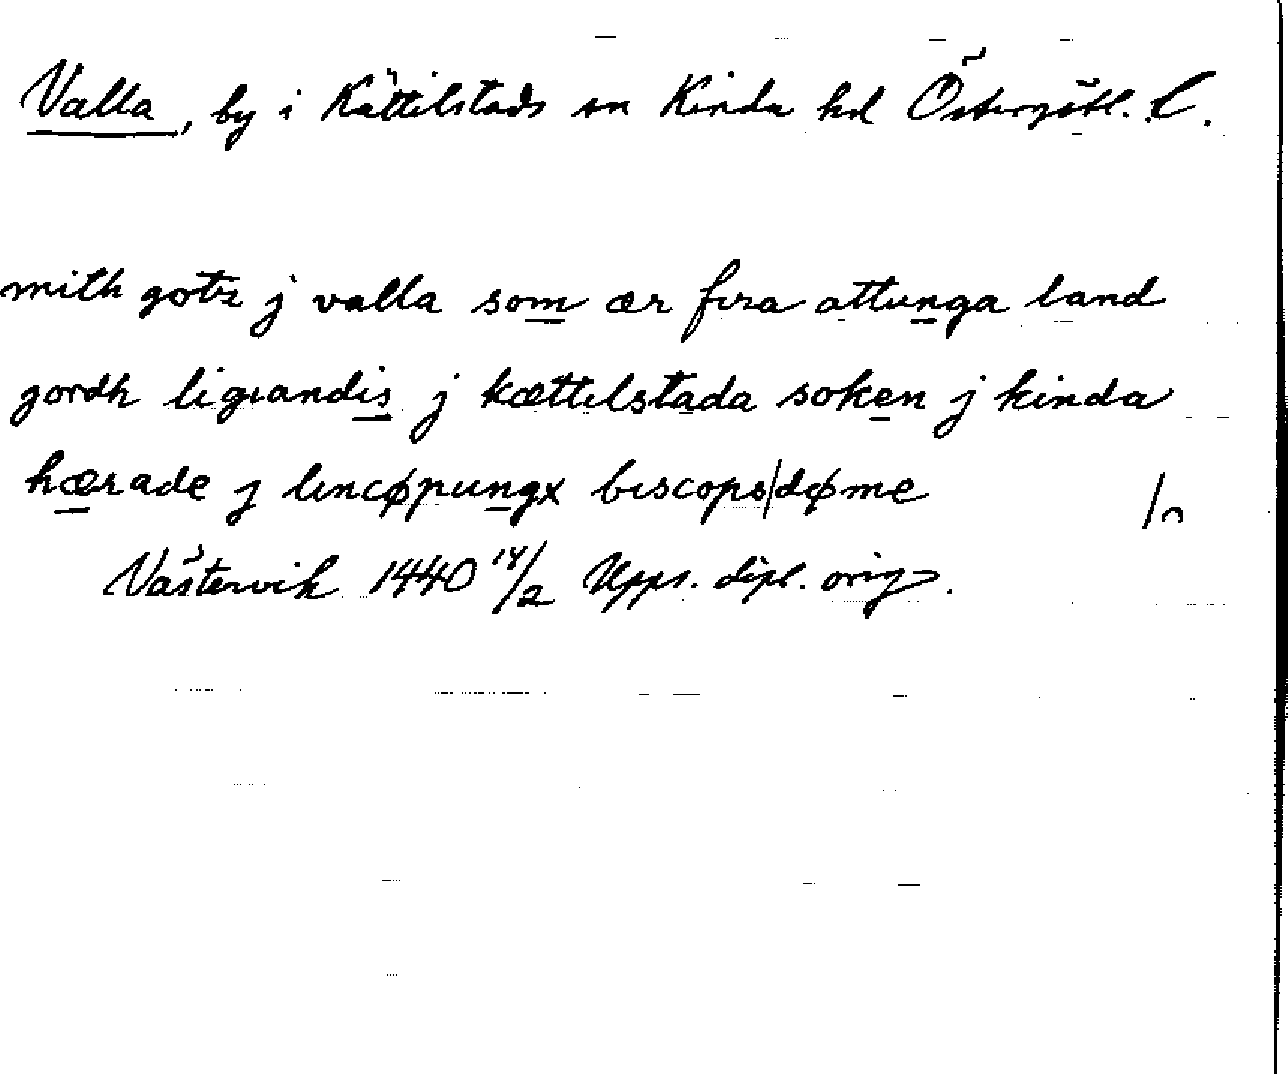 Valla, by i Kättilstads sn Kinda hd Östergötl. l.
mith gotz j valla som ær fira attunga land
gordh ligiandis j kættilstada soken j kinda
hærade j lincøpungx biscops|døme
Västervik 1440 14/2 Upps. dipl. orig.